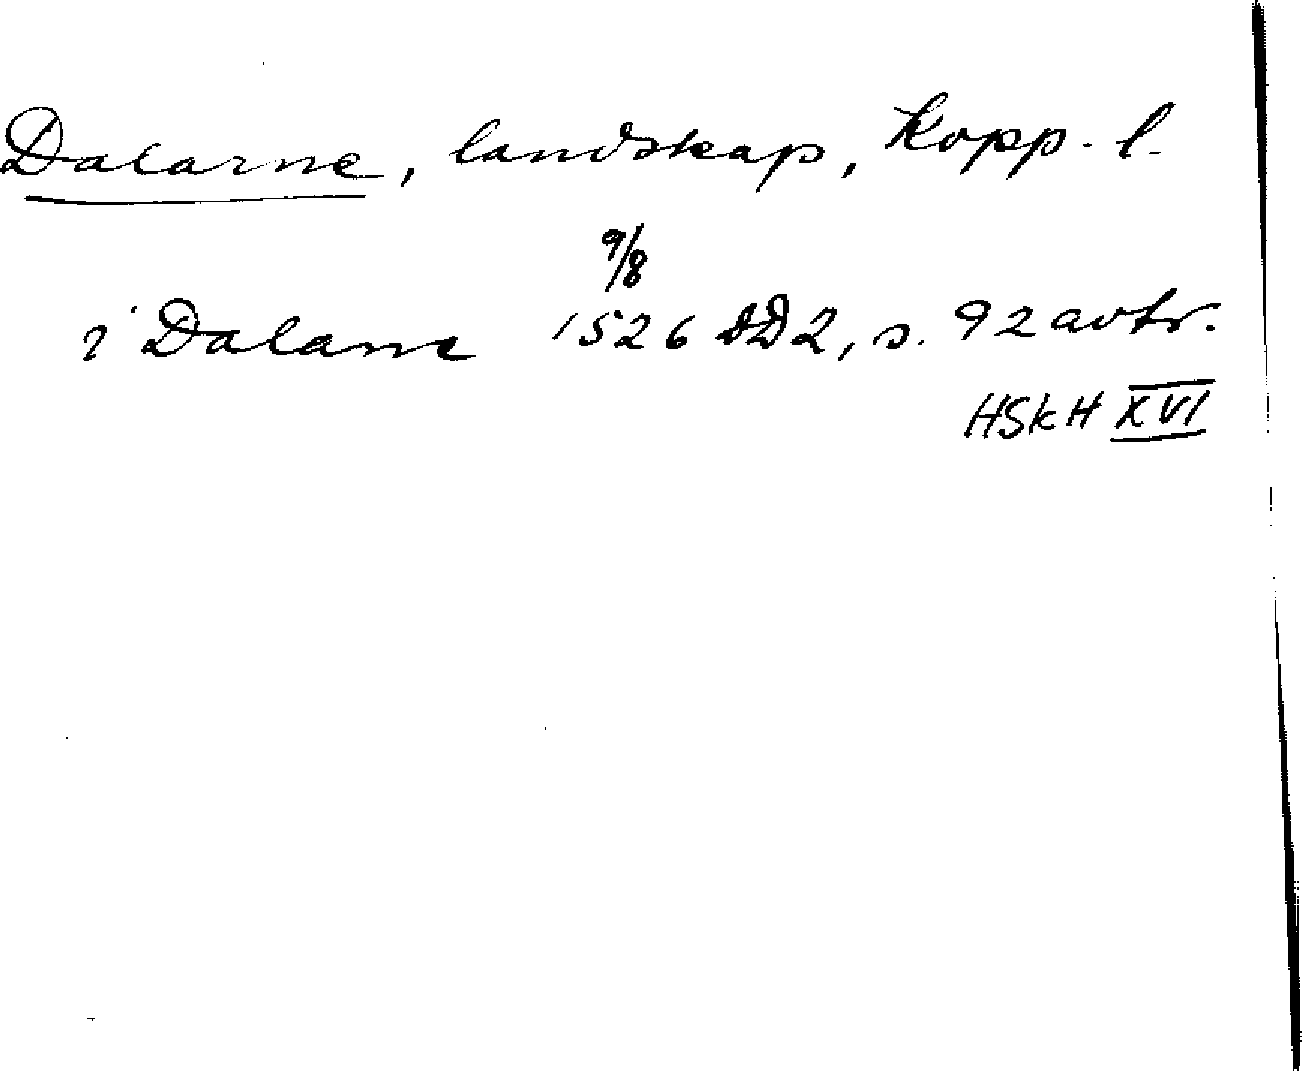 Dalarne, landskap, Kopp. l.
9/8
i Dalarne 1526 DD2, s. 92 avtr.
HSkH XVI